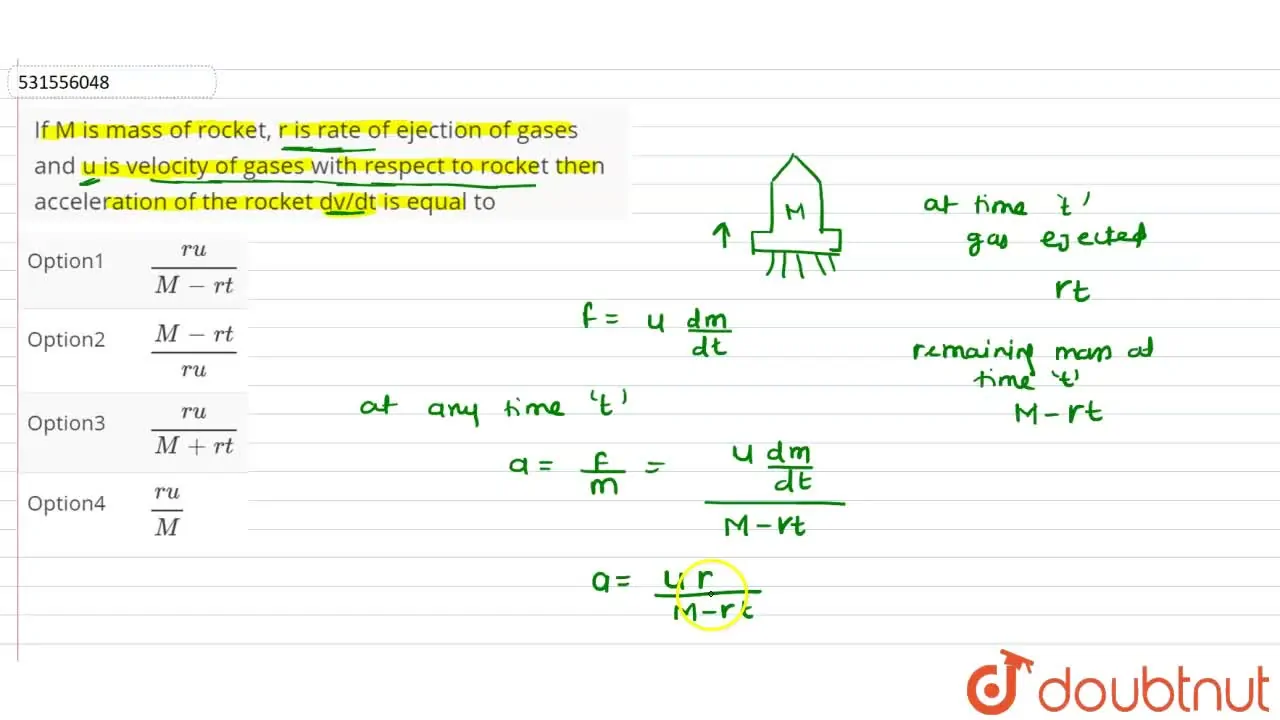 531556048
If M is mass of rocket, r is rate of ejection of gases
and u is velocity of gases with respect to rocket then
acceleration of the rocket dv/dt is equal to
Option1 ru / M − rt
Option2 M − rt / ru
Option3 ru / M + rt
Option4 ru / M
M
at time 't'
gas ejected
rt
f = u dm/dt
remaining mass at
time 't'
M − rt
at any time 't'
a = f/m = u dm/dt / M − rt
a = u r / M − rt
doubtnut